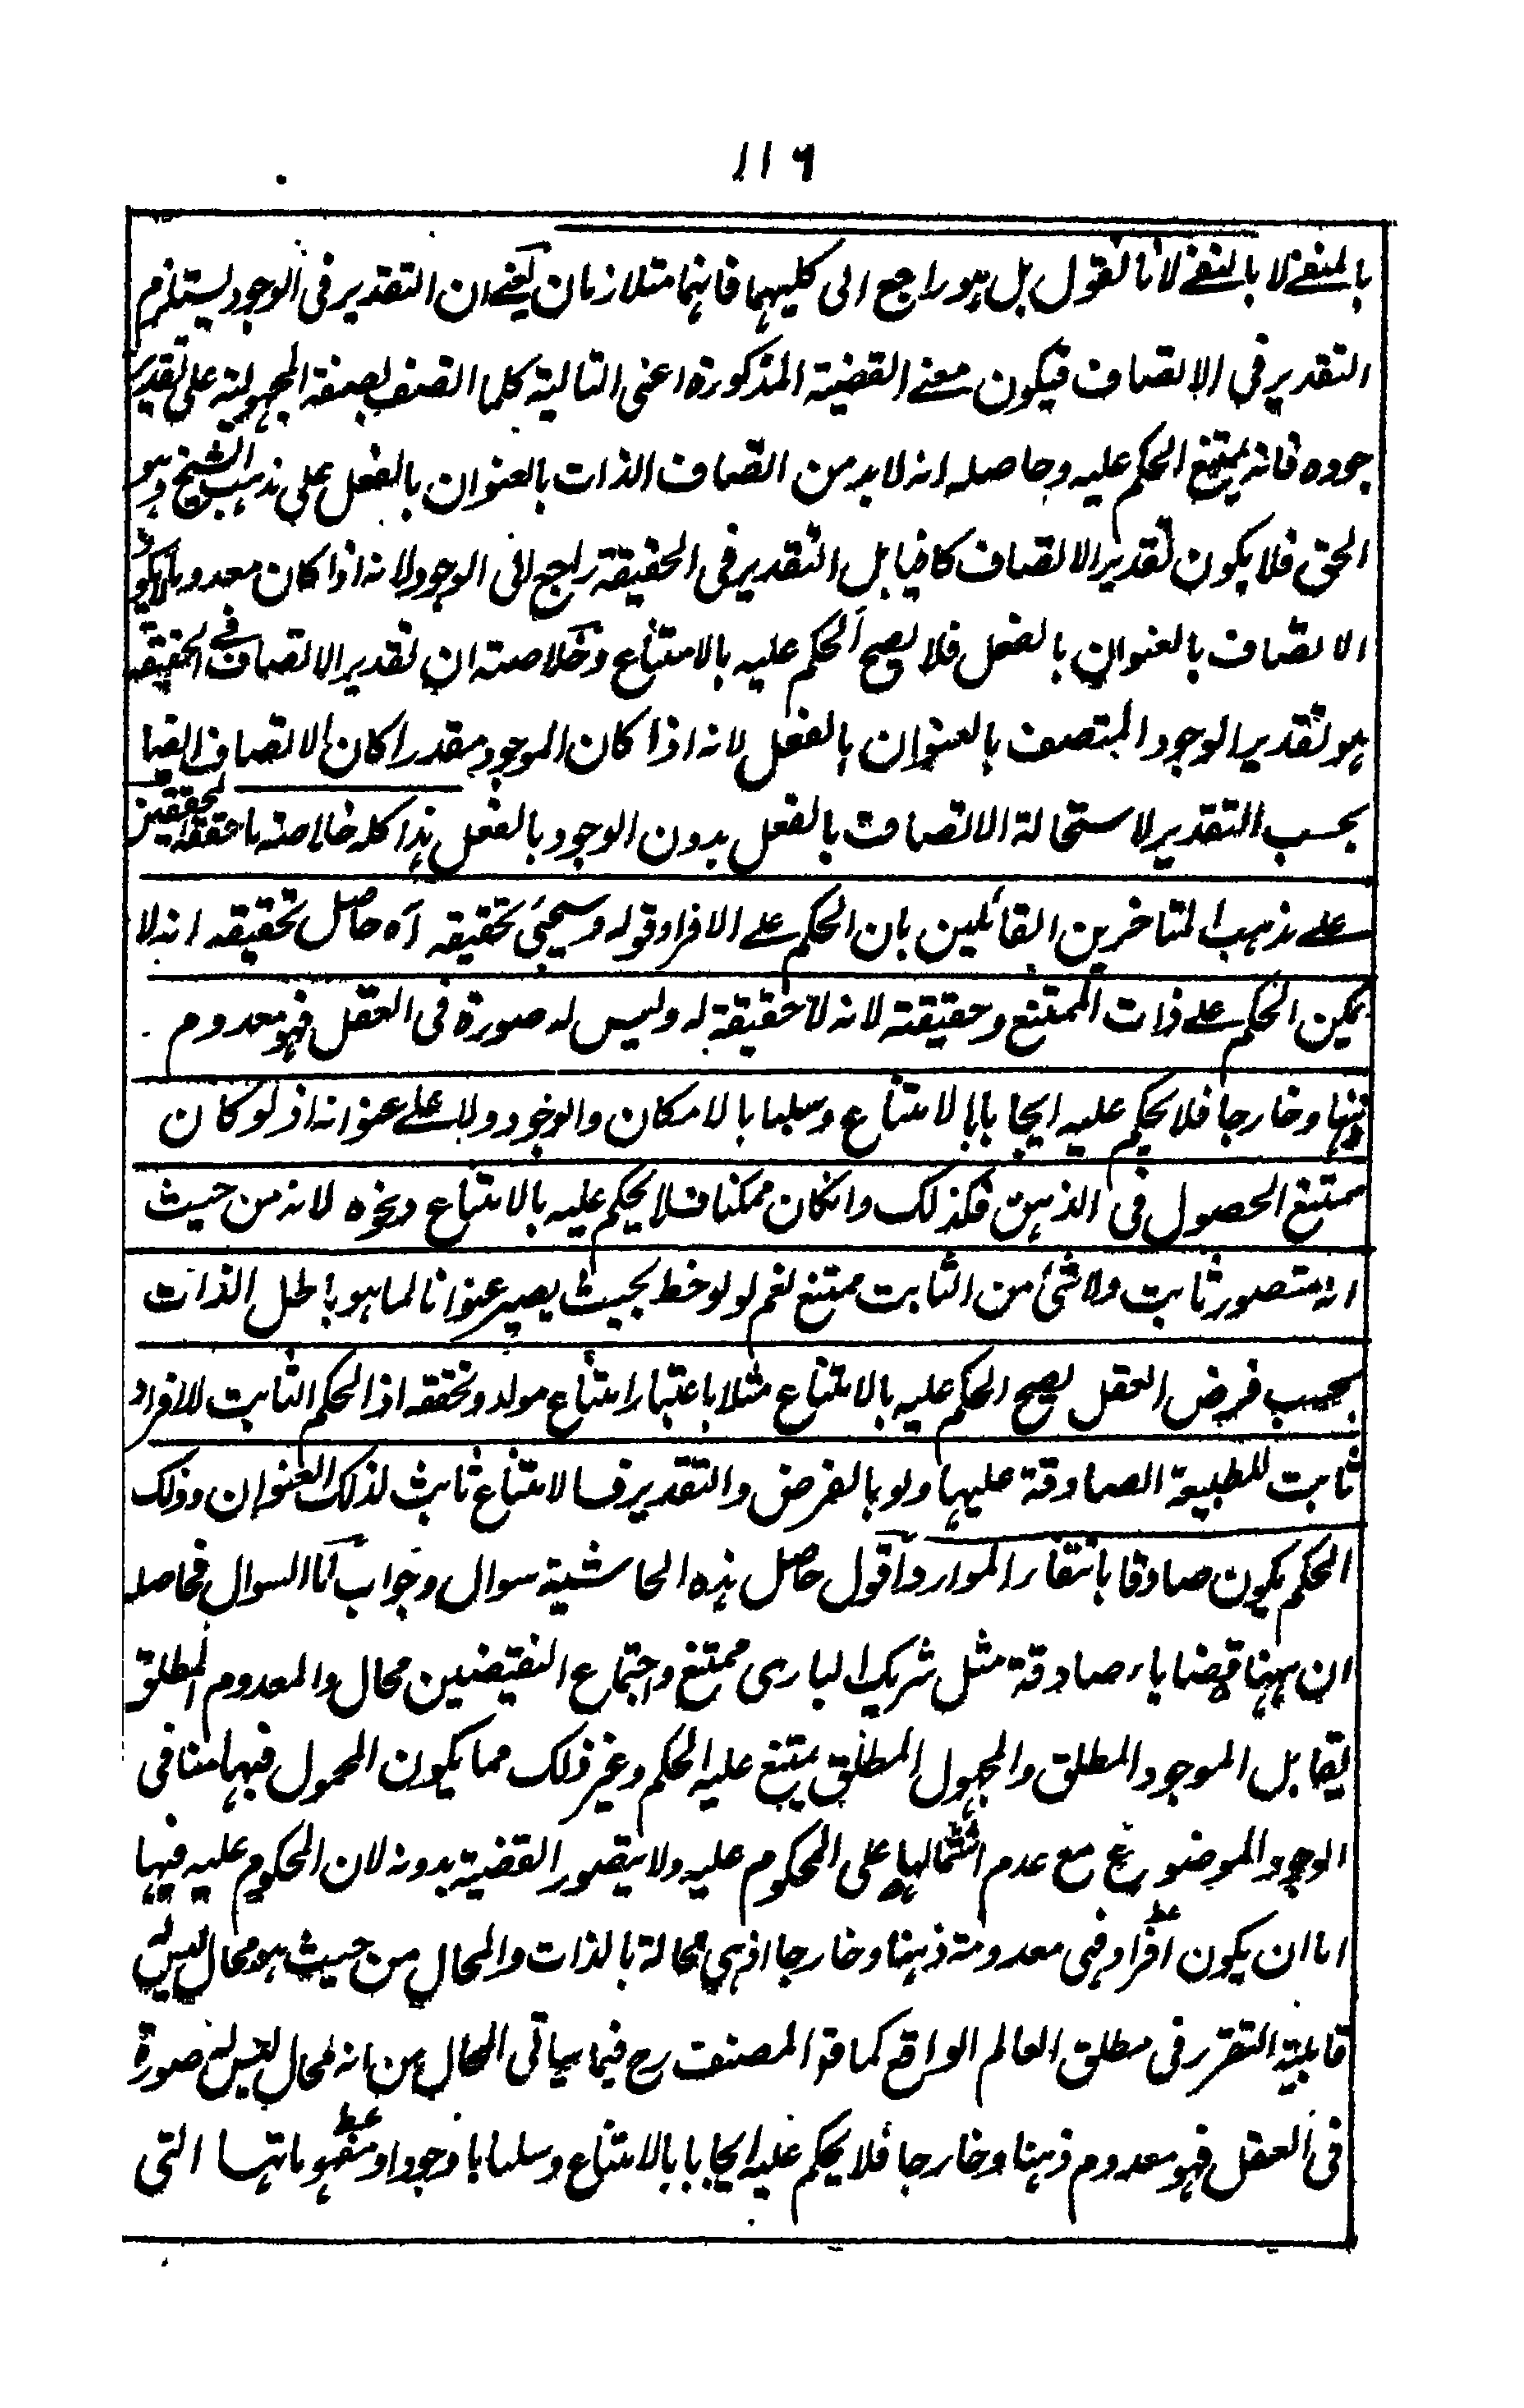 ١١٦
بالمنفے لا بالنفے لانا نقول بل ہو راجع الی کلیہما فانہما متلازمان یعنے ان التقدیر فی الوجود یستلزم
التقدیر فی الاتصاف فیکون معنے القضیۃ المذکورۃ اعنی التالیۃ کلما اتصف بصفۃ المجہولیۃ علی تقدیر
جودہ فانہ یمتنع الحکم علیہ وحاصلہ انہ لابد من اتصاف الذات بالعنوان بالفعل علی مذہب الشیخ وہو
الحق فلا یکون تقدیر الاتصاف کافیا بل التقدیر فی الحقیقۃ راجع الی الوجود لانہ اذا کان معدوما لایکون
الاتصاف بالعنوان بالفعل فلا یصح الحکم علیہ بالامتناع وخلاصتہ ان تقدیر الاتصاف فے الحقیقۃ
ہو تقدیر الوجود المتصف بالعنوان بالفعل لانہ اذا کان الموجود مقدرا کان الاتصاف ایضا
بحسب التقدیر لاستحالۃ الاتصاف بالفعل بدون الوجود بالفعل ہذا کلہ خلاصۃ ما حققہ المحققین
علے مذہب المتاخرین القائلین بان الحکم علے الافراد قولہ وسیجیٔ تحقیقہ آہ حاصل تحقیقہ انہ لا
یمکن الحکم علے ذات الممتنع وحقیقتہ لانہ لا حقیقۃ لہ ولیس لہ صورۃ فی العقل فہو معدوم
ذہنا وخارجا فلا یحکم علیہ ایجابا بالامتناع وسلبا بالامکان والوجود ولا علے عنوانہ اذ لو کان
ممتنع الحصول فی الذہن فکذلک وانکان ممکنا فلا یحکم علیہ بالامتناع ونحوہ لانہ من حیث
انہ متصور ثابت ولا شیٔ من الثابت ممتنع نعم لو لوحظ بحیث یصیر عنوانا لما ہو باطل الذات
بحسب فرض العقل یصح الحکم علیہ بالامتناع مثلا باعتبار امتناع موارد وتحققہ اذ الحکم الثابت للافراد
ثابت للطبیعۃ الصادقۃ علیہا ولو بالفرض والتقدیر فالامتناع ثابت لذلک العنوان وذلک
الحکم یکون صادقا بانتفاء الموارد اقول حاصل ہذہ الحاشیۃ سوال وجواب اما السوال فحاصلہ
ان ہہنا قضایاء صادقۃ مثل شریک الباری ممتنع واجتماع النقیضین محال والمعدوم المطلق
یقابل الموجود المطلق والمجہول المطلق یمتنع علیہ الحکم وغیر ذلک مما یکون المحمول فیہا منافی
الوجود الموضوع مع عدم اشتمالہا علی المحکوم علیہ ولا یتصور القضیۃ بدونہ لان المحکوم علیہ فیہا
اما ان یکون افراد فہی معدومۃ ذہنا وخارجا اذ ہی محالۃ بالذات والمحال من حیث ہو محال لیس لہ
قابلیۃ التقرر فی مطلق العالم الواقع کما المصنف رح فیما سیاتی المحال من انہ محال لیس لہ صورۃ
فی العقل فہو معدوم ذہنا وخارجا فلا یحکم علیہ ایجابا بالامتناع وسلبا بالوجود او مفہوماتہا التی